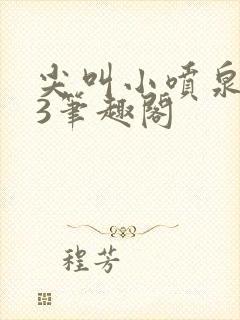 尖叫小喷泉
3笔趣阁
程芳